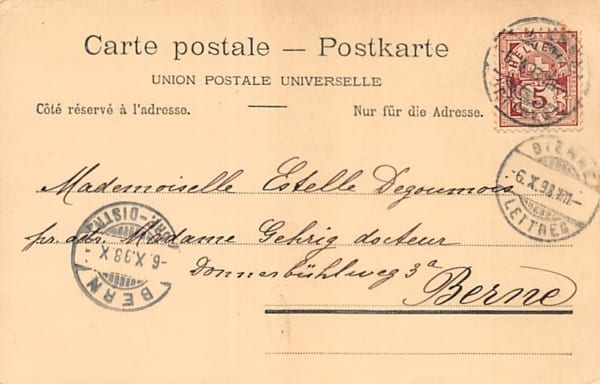 Carte postale — Postkarte
UNION POSTALE UNIVERSELLE
Côté réservé à l'adresse. Nur für die Adresse.
HELVETIA
5
BIENNE
-6.X.98.VII-
LETTRES
Mademoiselle Estelle Degoumois
BRF.-DISTR.
-6.X.98.X
BERN
pr. adr. Madame Gehrig docteur
Donnerbühlweg 3a
Berne